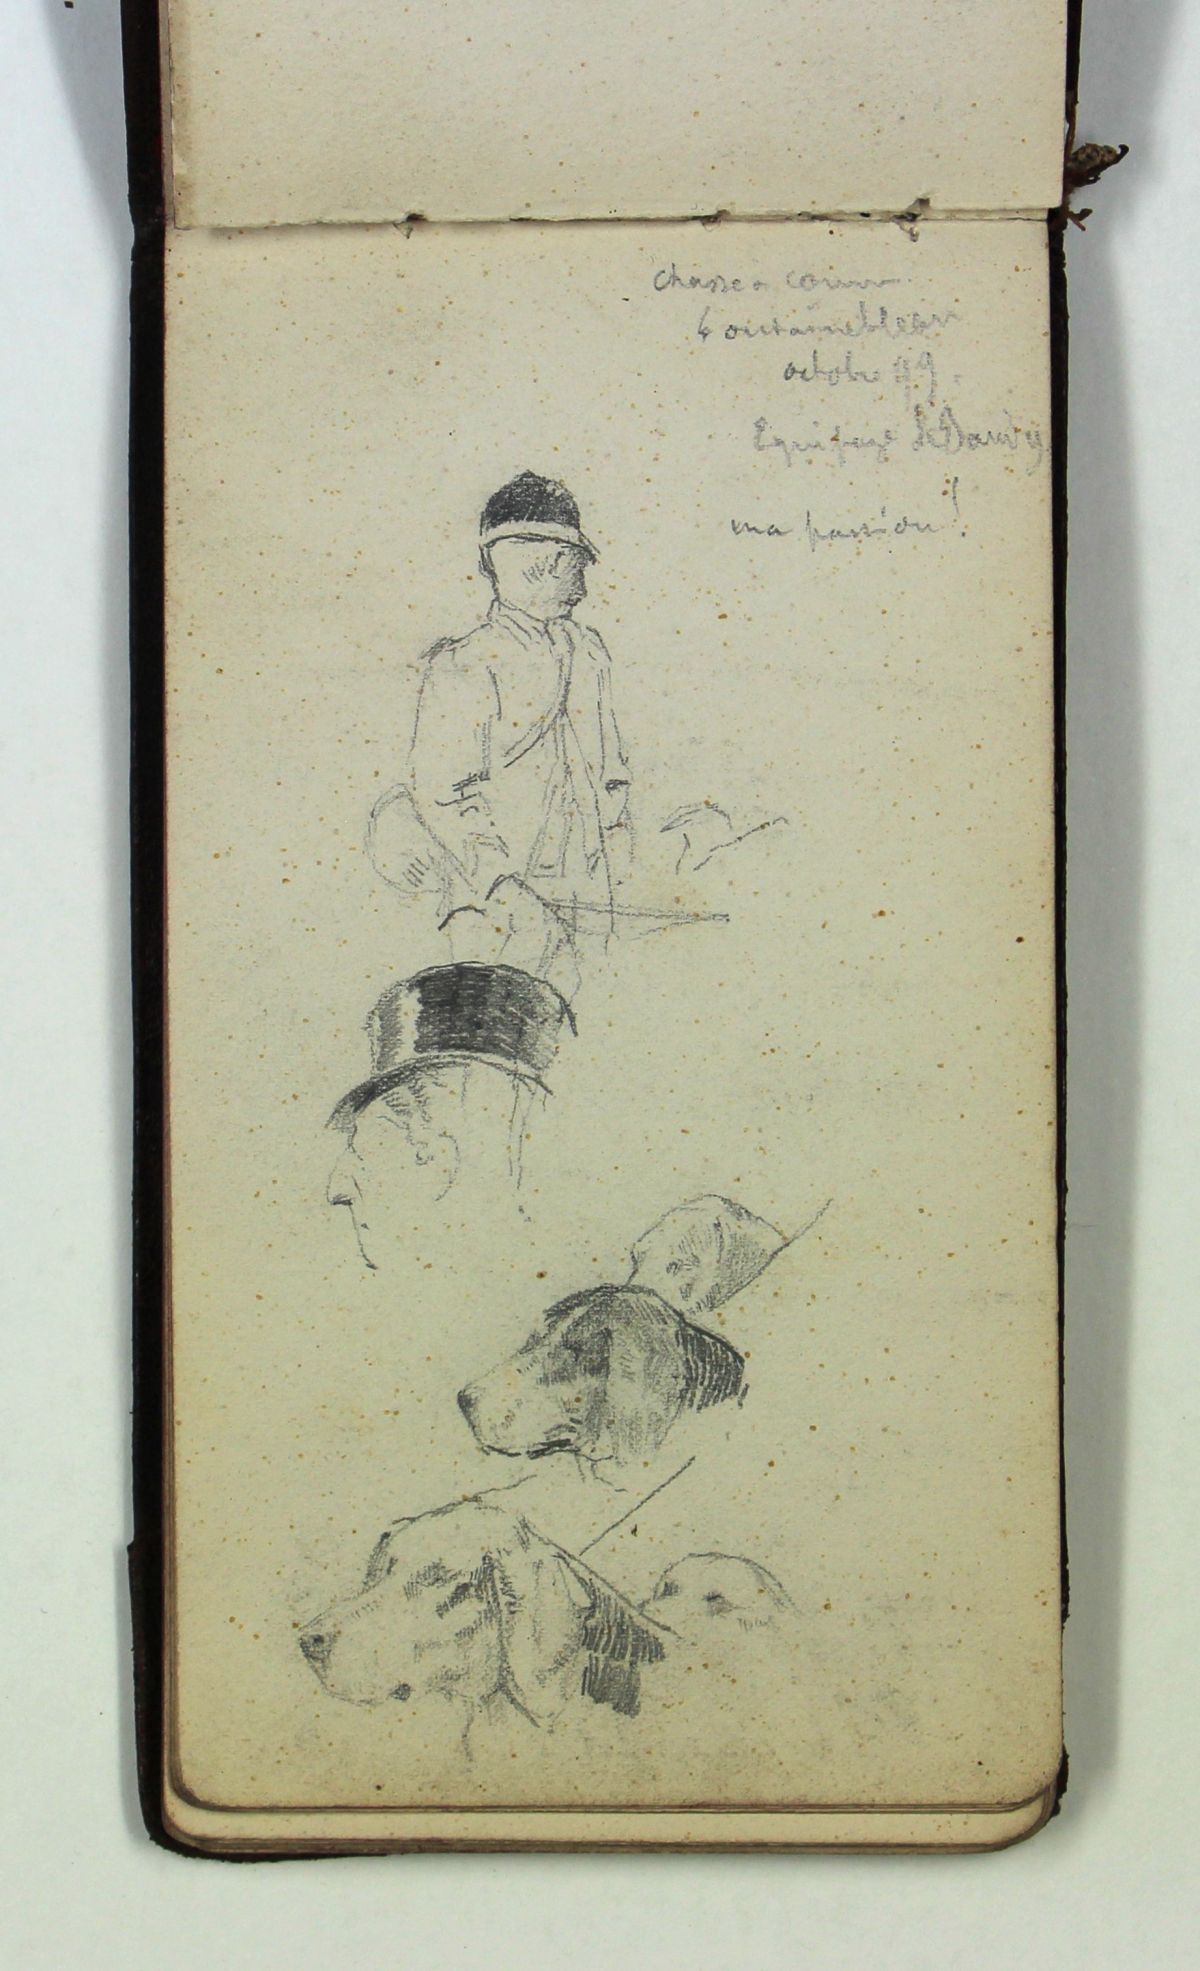 chasse à courre
Fontainebleau
octobre 49.
Equipage
ma passion !